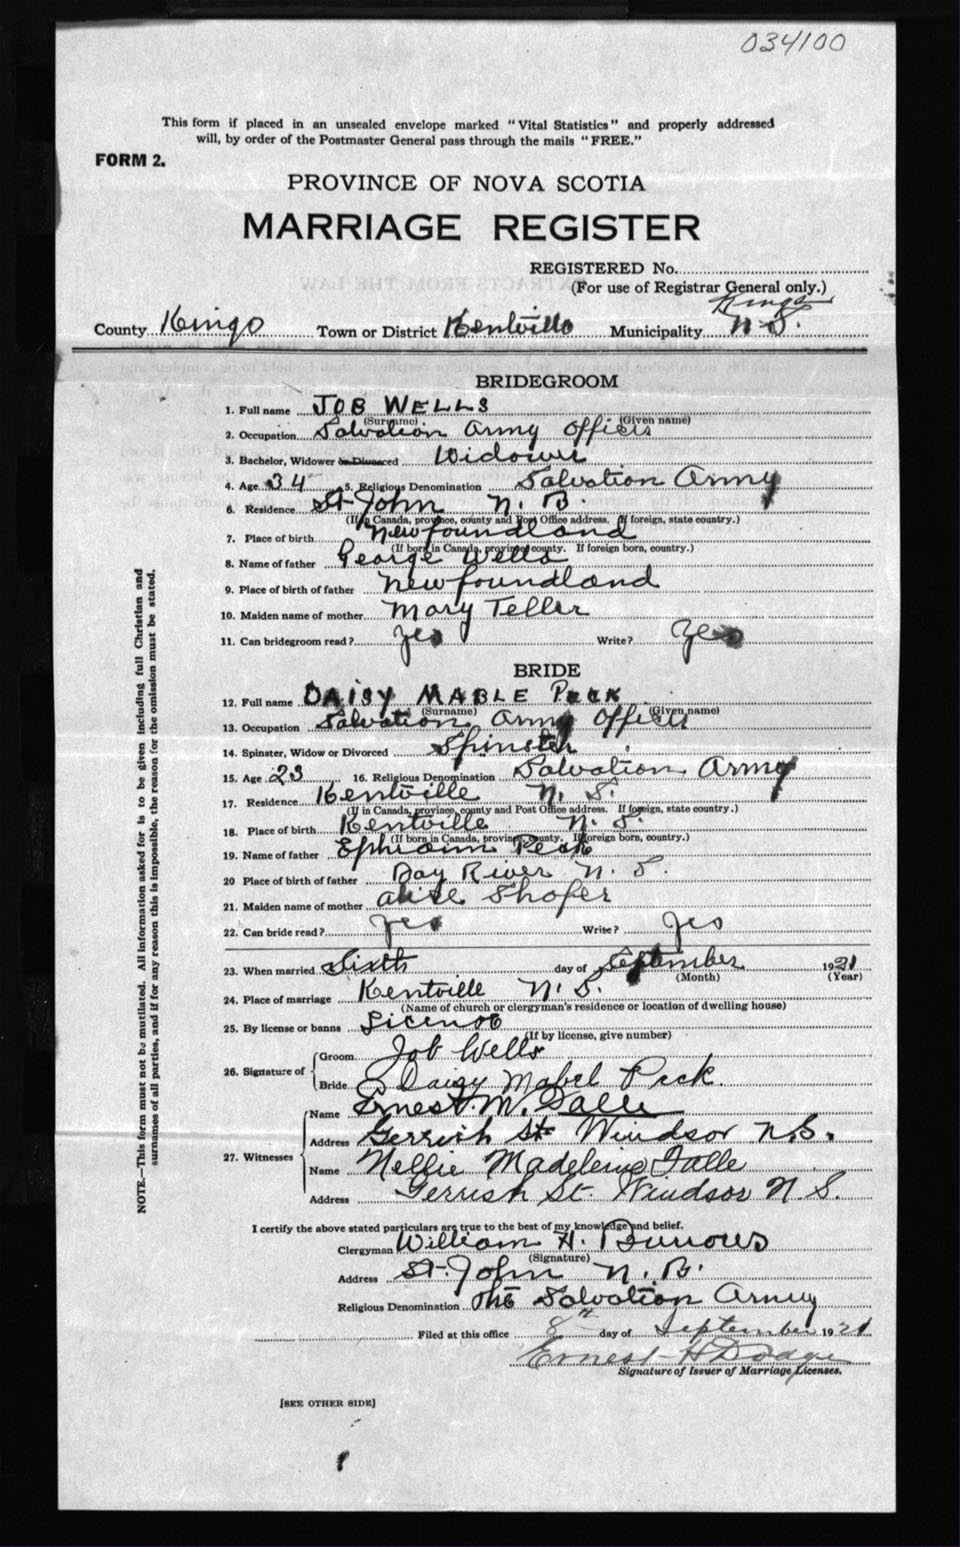 034100
This form if placed in an unsealed envelope marked "Vital Statistics" and properly addressed
will, by order of the Postmaster General pass through the mails "FREE."
FORM 2.
PROVINCE OF NOVA SCOTIA
MARRIAGE REGISTER
REGISTERED No.
(For use of Registrar General only.)
County Kings Town or District Kentville Municipality Kings N.S.
BRIDEGROOM
1. Full name JOB WELLS
(Surname) (Given name)
2. Occupation Salvation Army Officer
3. Bachelor, Widower or Divorced Widower
4. Age 34 5. Religious Denomination Salvation Army
6. Residence St John N. B.
(If in Canada, province, county and Post Office address. If foreign, state country.)
7. Place of birth Newfoundland
(If born in Canada, province, county. If foreign born, country.)
8. Name of father George Wells
9. Place of birth of father Newfoundland
10. Maiden name of mother Mary Teller
11. Can bridegroom read? Yes Write? Yes
BRIDE
12. Full name DAISY MABLE PECK
(Surname) (Given name)
13. Occupation Salvation Army Officer
14. Spinster, Widow or Divorced Spinster
15. Age 23 16. Religious Denomination Salvation Army
17. Residence Kentville N. S.
(If in Canada, province, county and Post Office address. If foreign, state country.)
18. Place of birth Kentville N. S.
(If born in Canada, province, county. If foreign born, country.)
19. Name of father Ephriam Peck
20 Place of birth of father River N. S.
21. Maiden name of mother Shofer
22. Can bride read? Yes Write? Yes
23. When married Sixth day of September 1921
(Month) (Year)
24. Place of marriage Kentville N. S.
(Name of church or clergyman's residence or location of dwelling house)
25. By license or banns License
(If by license, give number)
26. Signature of
Groom Job Wells
Bride Daisy Mabel Peck.
27. Witnesses
Name Ernest M. Salle
Address Gerrish St Windsor N.S.
Name Nellie Madeleine Salle
Address Gerrish St. Windsor N. S.
I certify the above stated particulars are true to the best of my knowledge and belief.
Clergyman William H. Burrows
(Signature)
Address St. John N. B.
Religious Denomination The Salvation Army
Filed at this office 8th day of September 1921
Ernest H Dodge
Signature of Issuer of Marriage Licenses.
[SEE OTHER SIDE]
NOTE.—This form must not be mutilated. All information asked for is to be given including full Christian and
surnames of all parties, and if for any reason this is impossible, the reason for the omission must be stated.